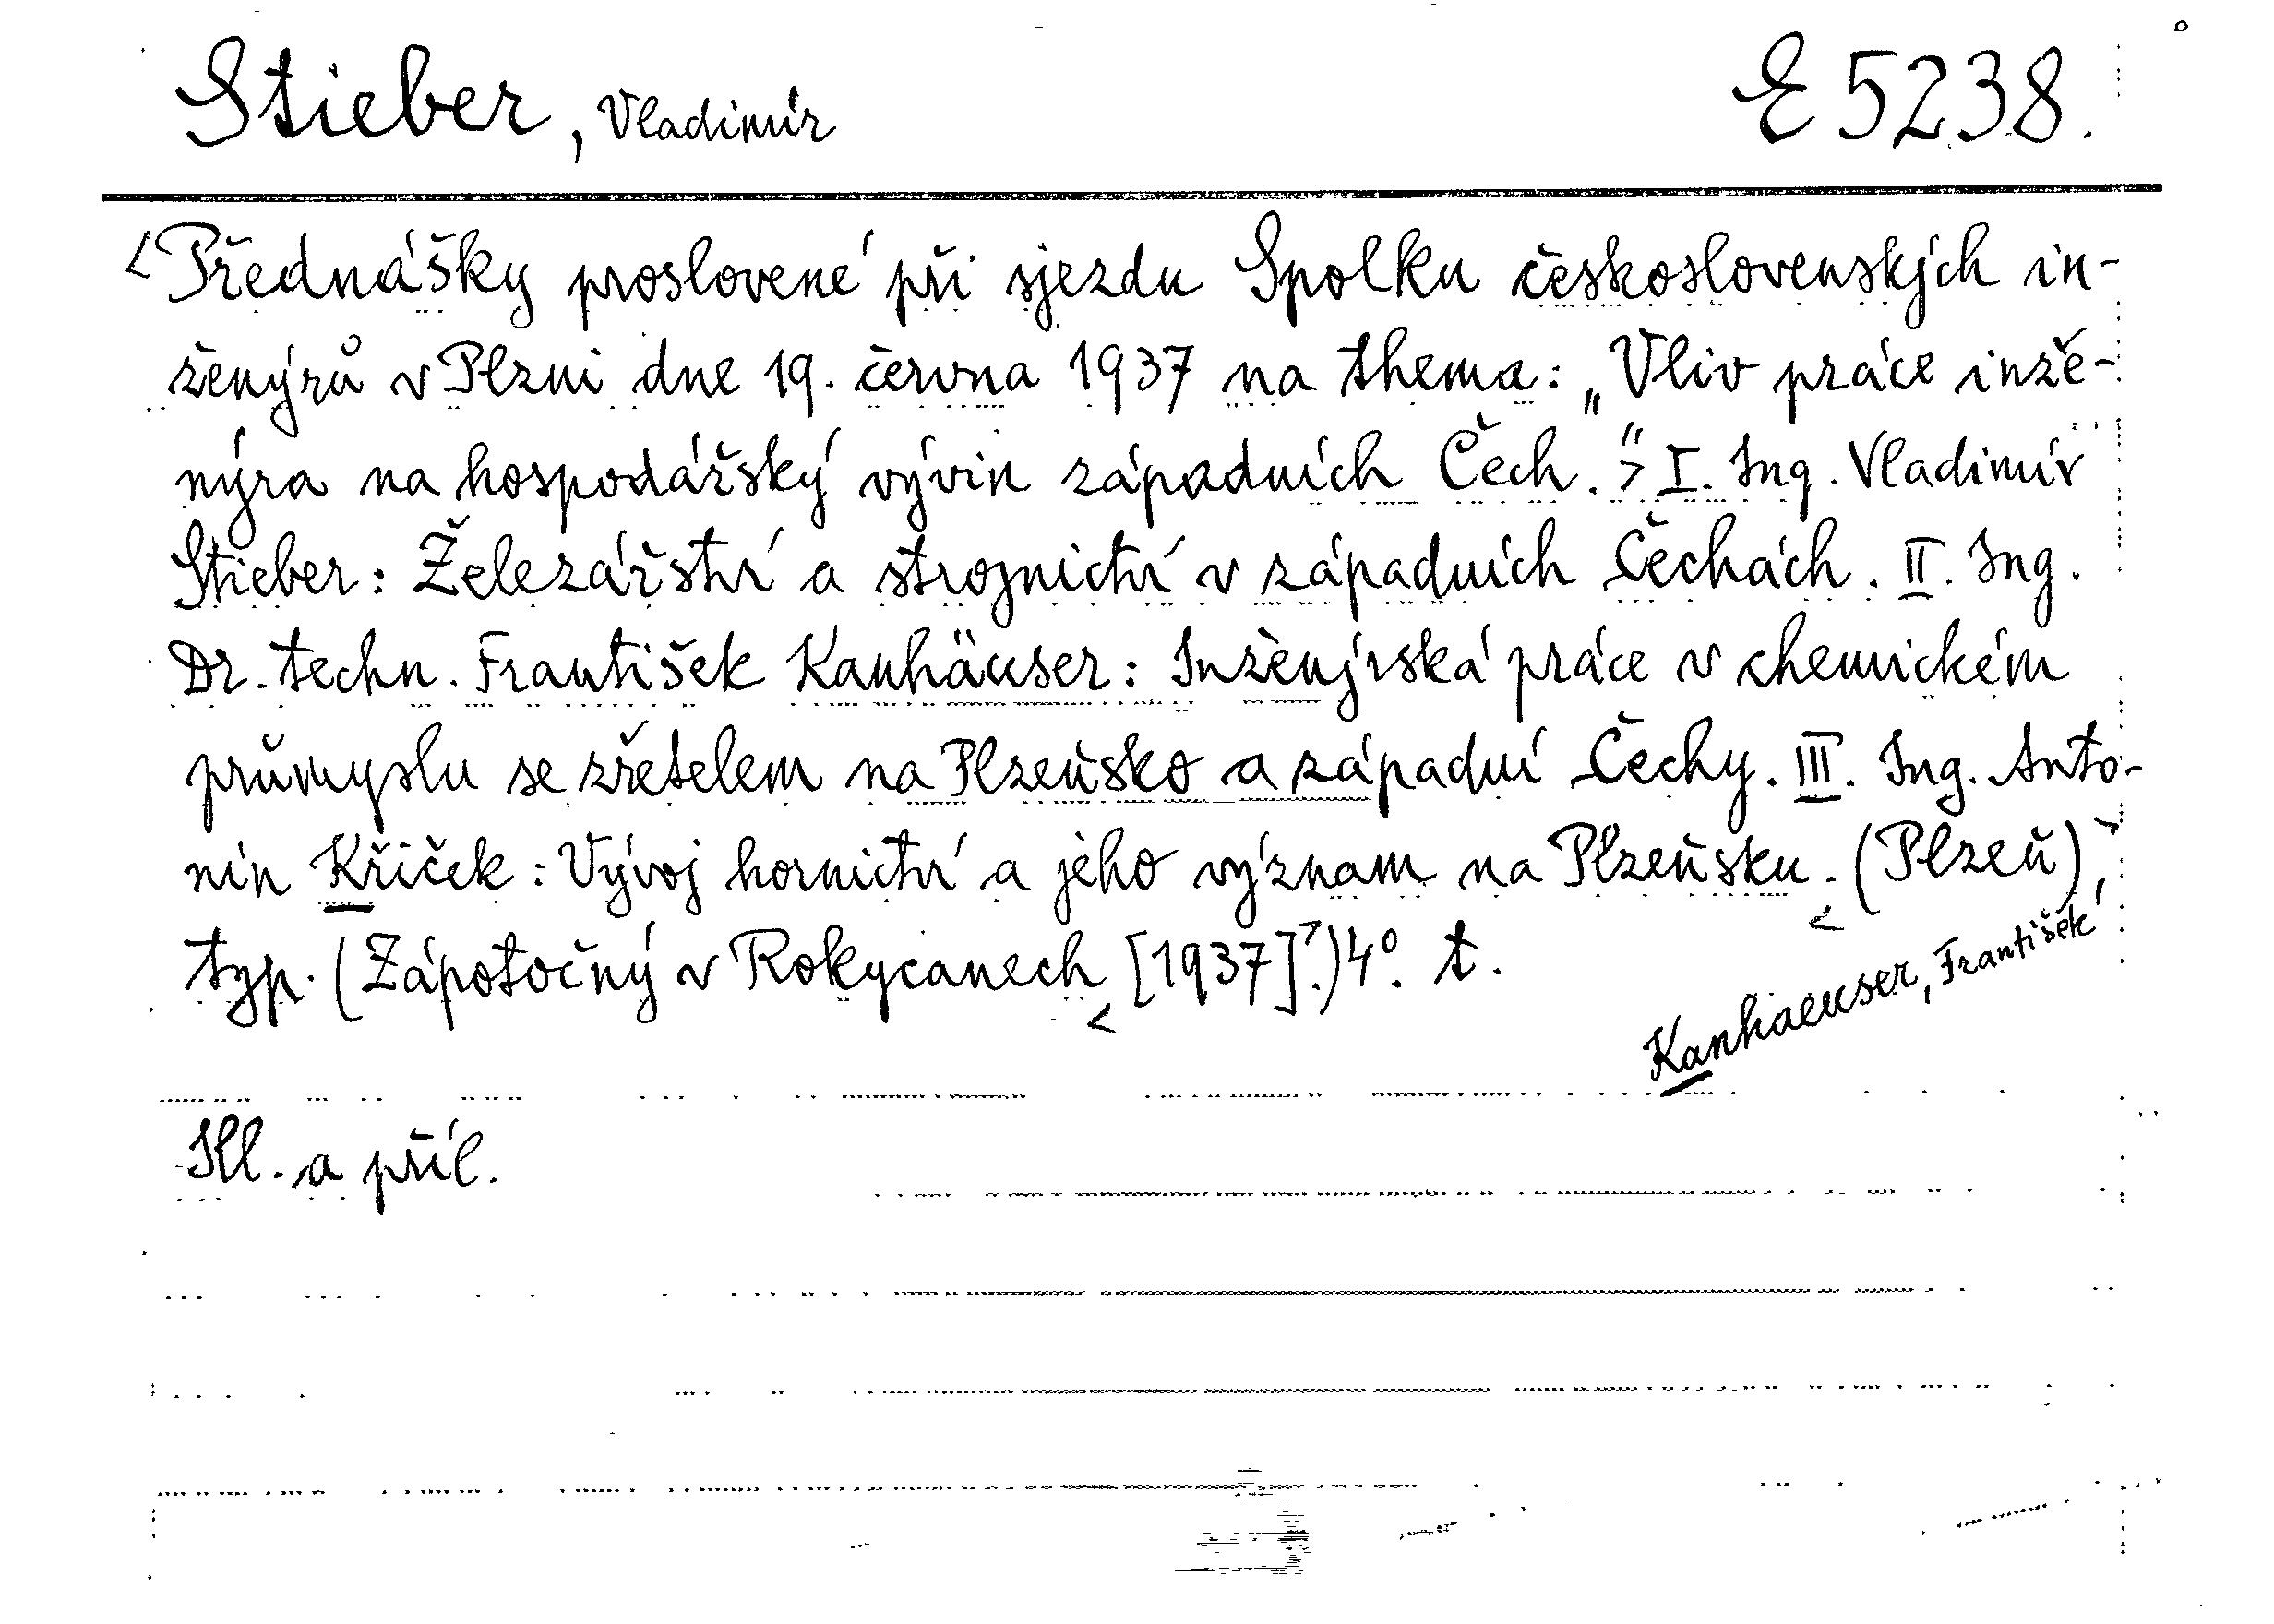 Stieber, Vladimír E 5238.
<Přednášky proslovené při sjezdu Spolku československých in-
ženýrů v Plzni dne 19. června 1937 na thema: „Vliv práce inže-
nýra na hospodářský vývin západních Čech.“> I. Ing. Vladimír
Stieber: Železářství a strojnictví v západních Čechách. II. Ing.
Dr. techn. František Kanhäuser: Inženýrská práce v chemickém
průmyslu se zřetelem na Plzeňsko a západní Čechy. III. Ing. Anto-
nín Kříček: Vývoj hornictví a jeho význam na Plzeňsku. <(Plzeň)>,
typ. (Zápotočný v Rokycanech <[1937]>.) 4°. t.
Kanhaeuser, František
Ill. a příl.